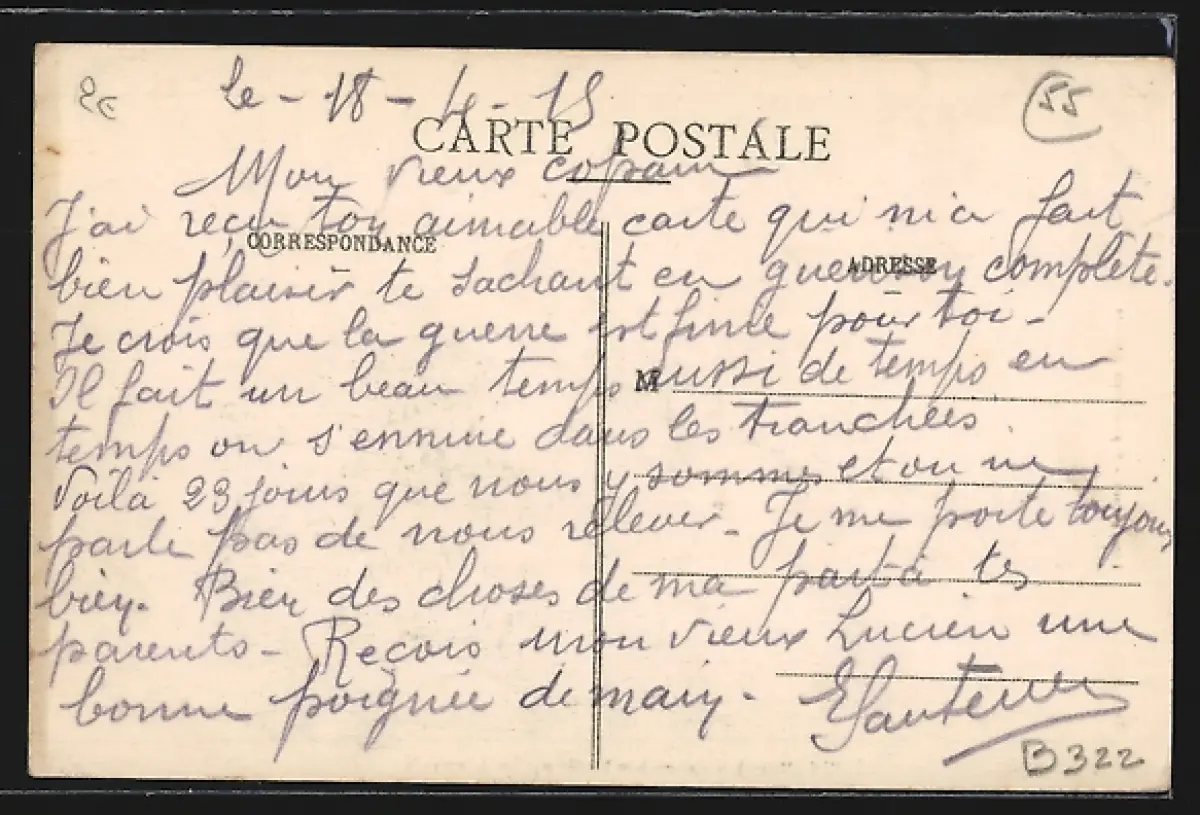 2€
le - 18 - 4 - 15
55
CARTE POSTALE
Mon vieux copain
J'ai reçu ton aimable carte qui m'a fait
CORRESPONDANCE
ADRESSE
bien plaisir te sachant en guerison complète.
Je crois que la guerre est finie pour toi -
Il fait un beau temps aussi de temps en
M
temps on s'ennuie dans les tranchées.
Voilà 23 jours que nous y sommes et on ne
parle pas de nous relever - Je me porte toujours
bien. Bien des choses de ma part à tes
parents - Reçois mon vieux Lucien une
bonne poignée de main.
B322